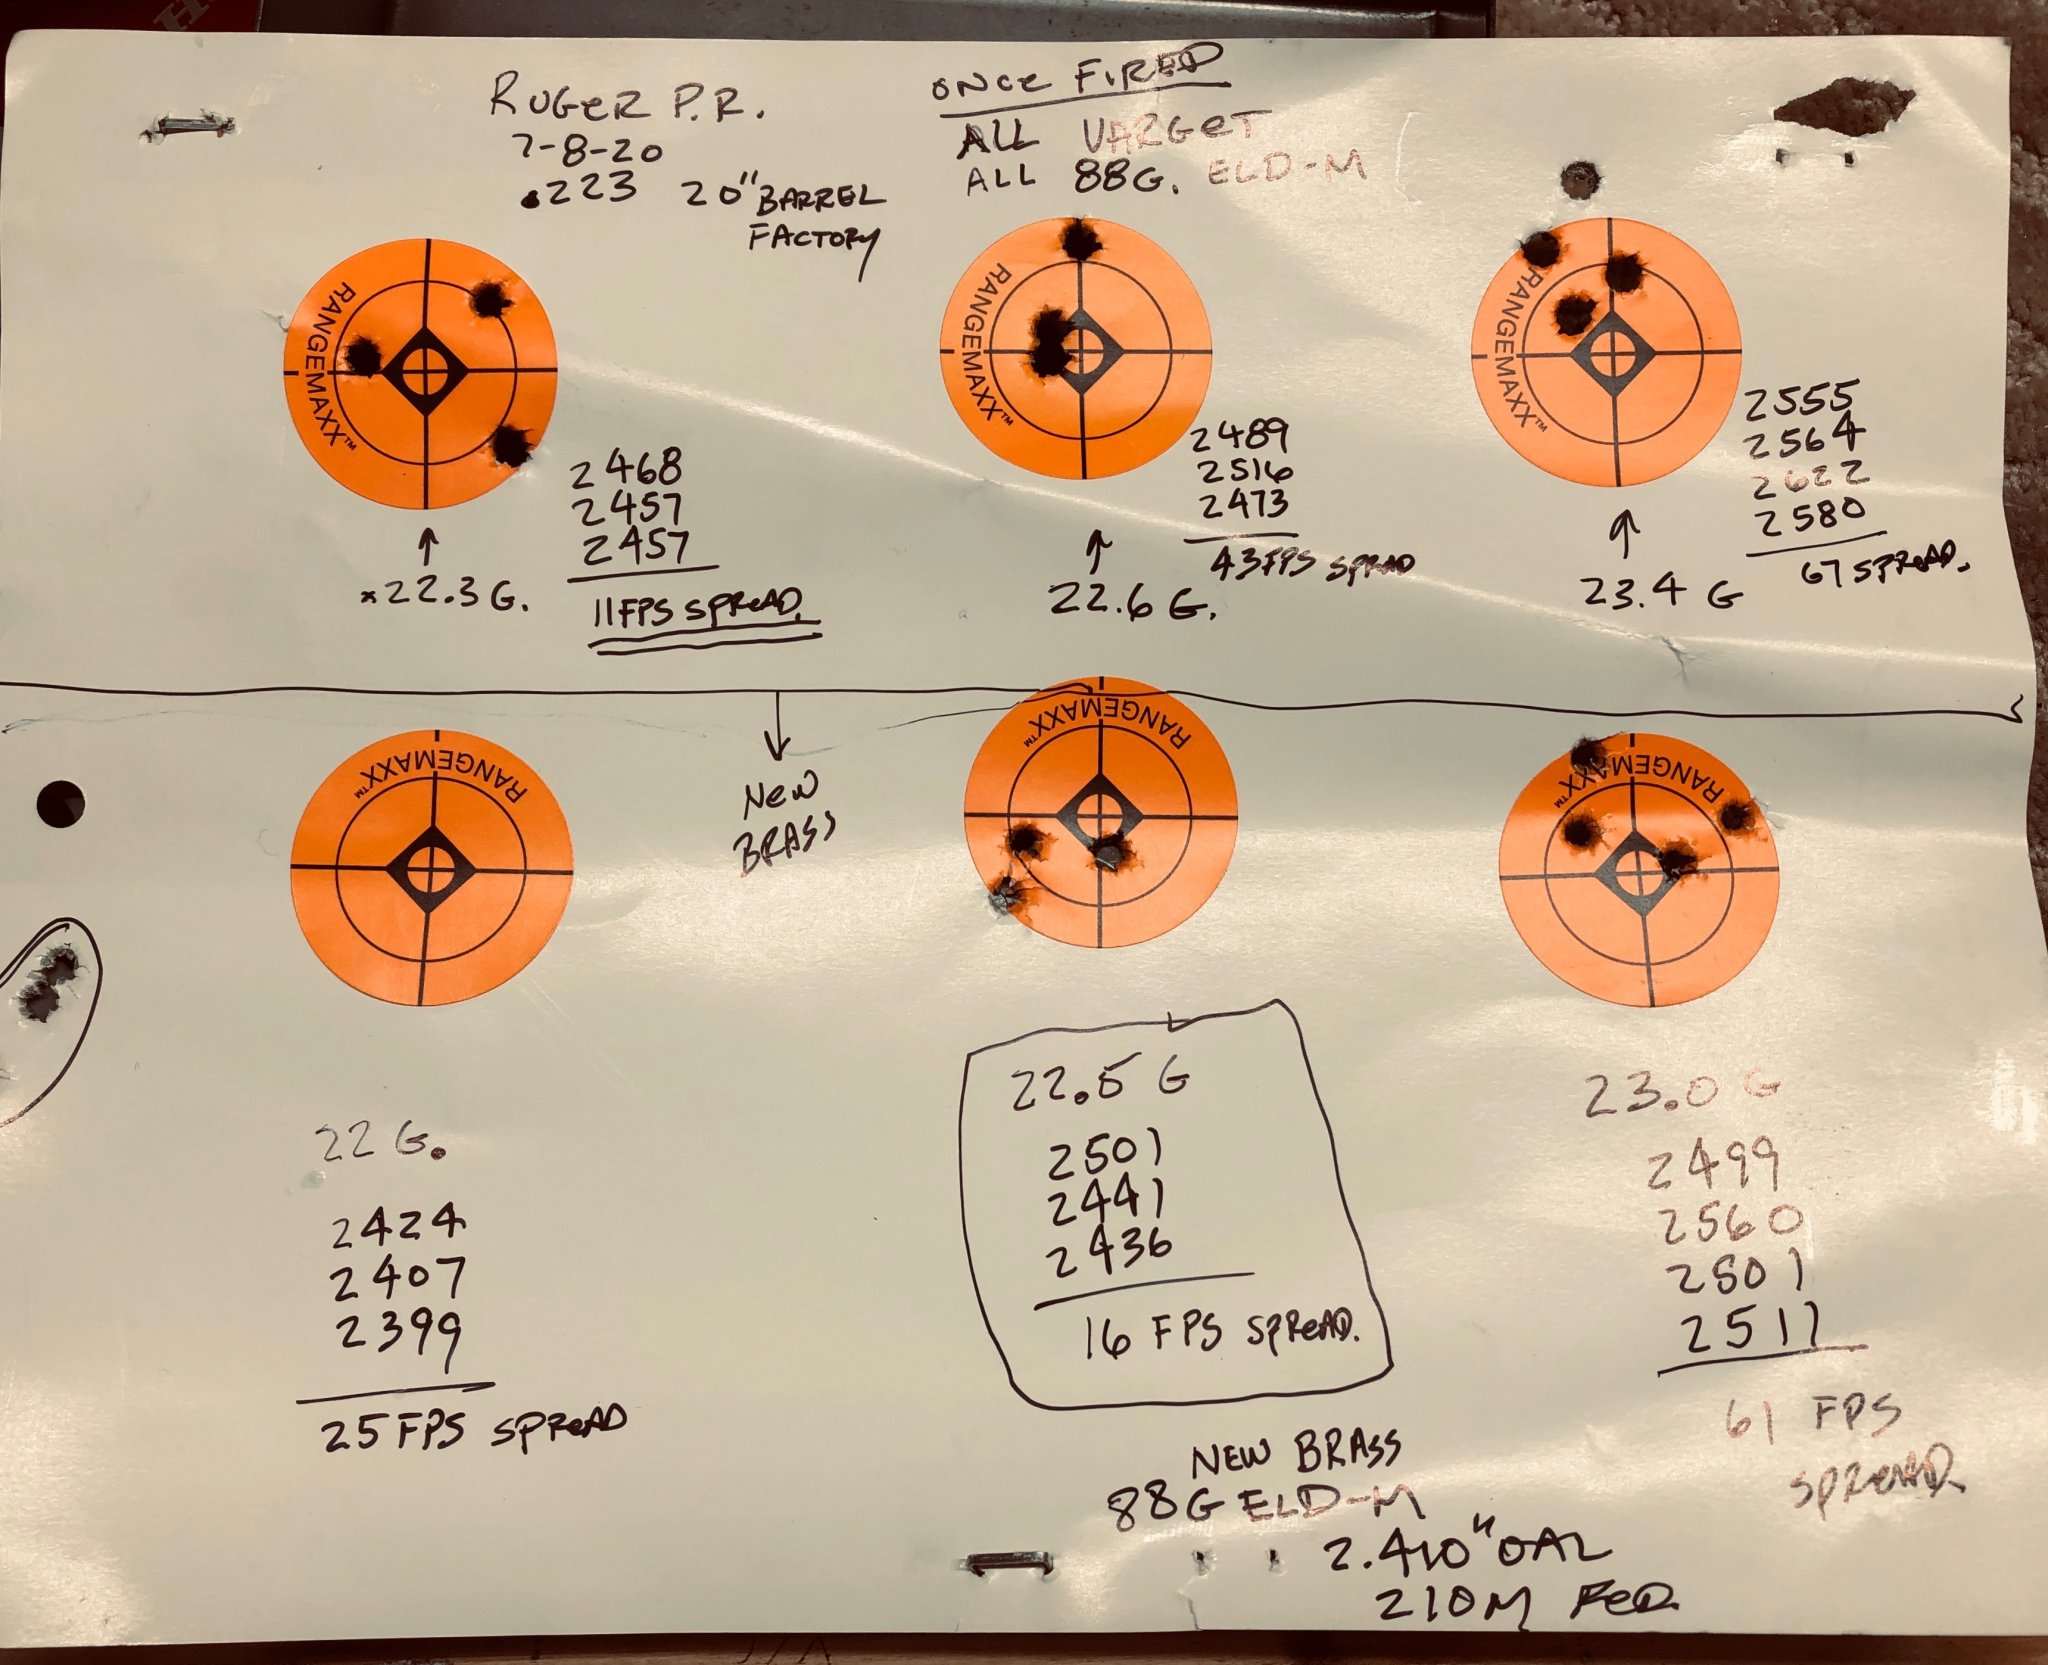 RUGER P.R.
7-8-20
.223 20" BARREL
FACTORY
ONCE FIRED
ALL VARGET
ALL 88G. ELD-M
RANGEMAXX™
2468
2457
2457
11 FPS SPREAD.
↑
*22.3 G.
RANGEMAXX™
2489
2516
2473
43 FPS SPREAD
↑
22.6 G.
RANGEMAXX™
2555
2564
2622
2580
67 SPREAD.
↑
23.4 G
↓
NEW
BRASS
RANGEMAXX™
22 G.
2424
2407
2399
25 FPS SPREAD
RANGEMAXX™
22.5 G
2501
2441
2436
16 FPS SPREAD.
RANGEMAXX™
23.0 G
2499
2560
2501
2511
61 FPS
SPREAD.
NEW BRASS
88G ELD-M
2.410" OAL
210M FED.